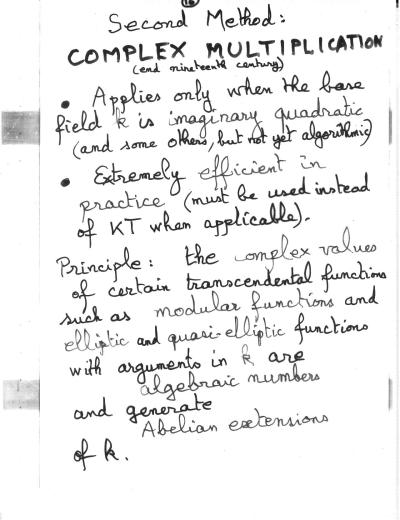 Second Method:
COMPLEX MULTIPLICATION
(end nineteenth century)
• Applies only when the base
field k is imaginary quadratic
(and some others, but not yet algorithmic)
• Extremely efficient in
practice (must be used instead
of KT when applicable).
Principle: the complex values
of certain transcendental functions
such as modular functions and
elliptic and quasi-elliptic functions
with arguments in k are
algebraic numbers
and generate
Abelian extensions
of k.